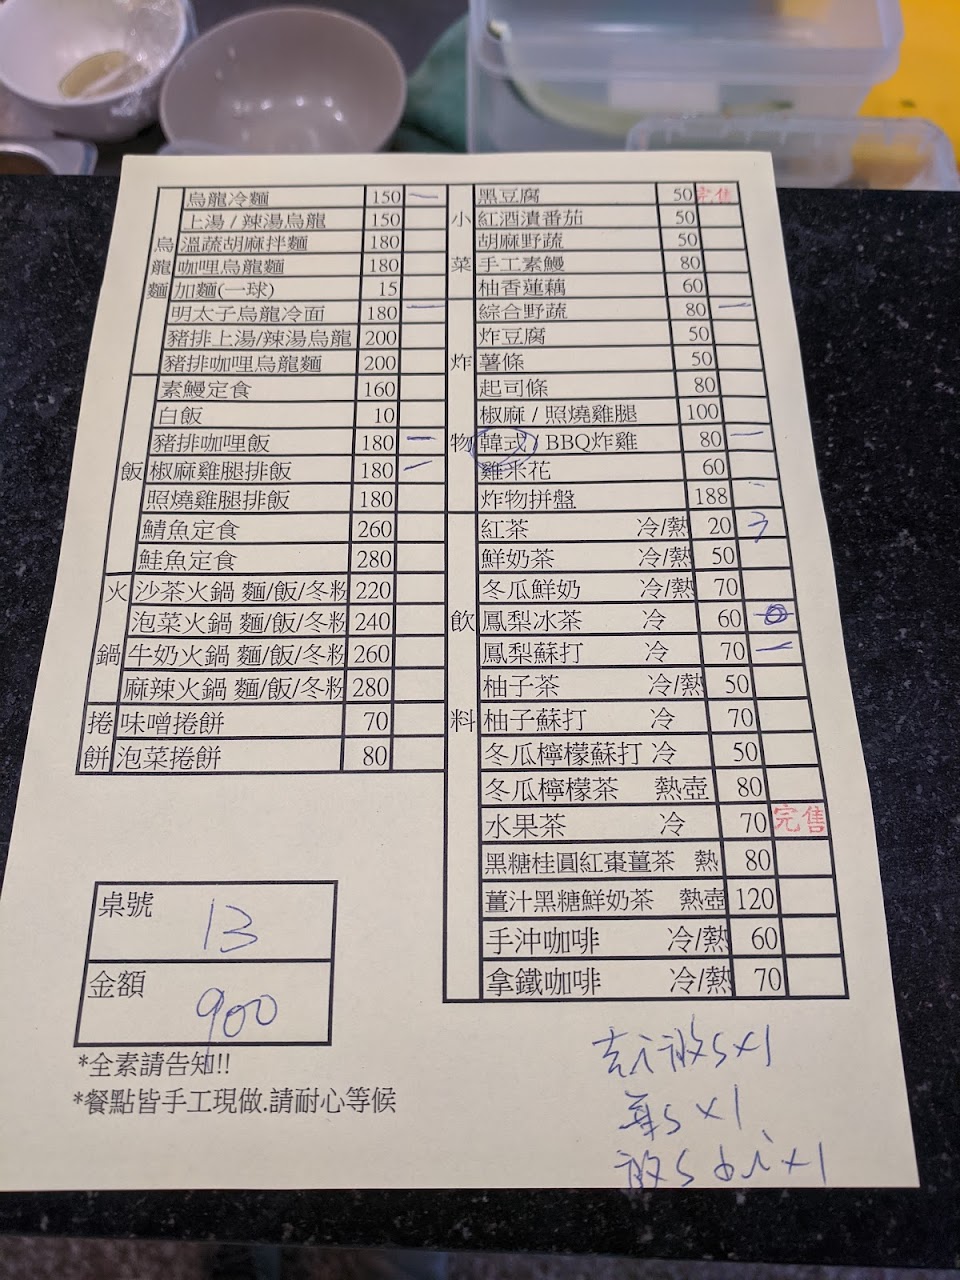 烏龍麵
烏龍冷麵 150 一
上湯 / 辣湯烏龍 150
溫蔬胡麻拌麵 180
咖哩烏龍麵 180
加麵(一球) 15
明太子烏龍冷面 180 一
豬排上湯/辣湯烏龍 200
豬排咖哩烏龍麵 200
飯
素鰻定食 160
白飯 10
豬排咖哩飯 180 一
椒麻雞腿排飯 180 一
照燒雞腿排飯 180
鯖魚定食 260
鮭魚定食 280
火鍋
沙茶火鍋 麵/飯/冬粉 220
泡菜火鍋 麵/飯/冬粉 240
牛奶火鍋 麵/飯/冬粉 260
麻辣火鍋 麵/飯/冬粉 280
捲餅
味噌捲餅 70
泡菜捲餅 80
小菜
黑豆腐 50 完售
紅酒漬番茄 50
胡麻野蔬 50
手工素鰻 80
柚香蓮藕 60
炸物
綜合野蔬 80 一
炸豆腐 50
薯條 50
起司條 80
椒麻 / 照燒雞腿 100
韓式 / BBQ炸雞 80 一
雞米花 60
炸物拼盤 188
飲料
紅茶 冷/熱 20 3
鮮奶茶 冷/熱 50
冬瓜鮮奶 冷/熱 70
鳳梨冰茶 冷 60
鳳梨蘇打 冷 70 一
柚子茶 冷/熱 50
柚子蘇打 冷 70
冬瓜檸檬蘇打 冷 50
冬瓜檸檬茶 熱壺 80
水果茶 冷 70 完售
黑糖桂圓紅棗薑茶 熱 80
薑汁黑糖鮮奶茶 熱壺 120
手沖咖啡 冷/熱 60
拿鐵咖啡 冷/熱 70
桌號 13
金額 900
*全素請告知!!
*餐點皆手工現做.請耐心等候
x1
x1
x1